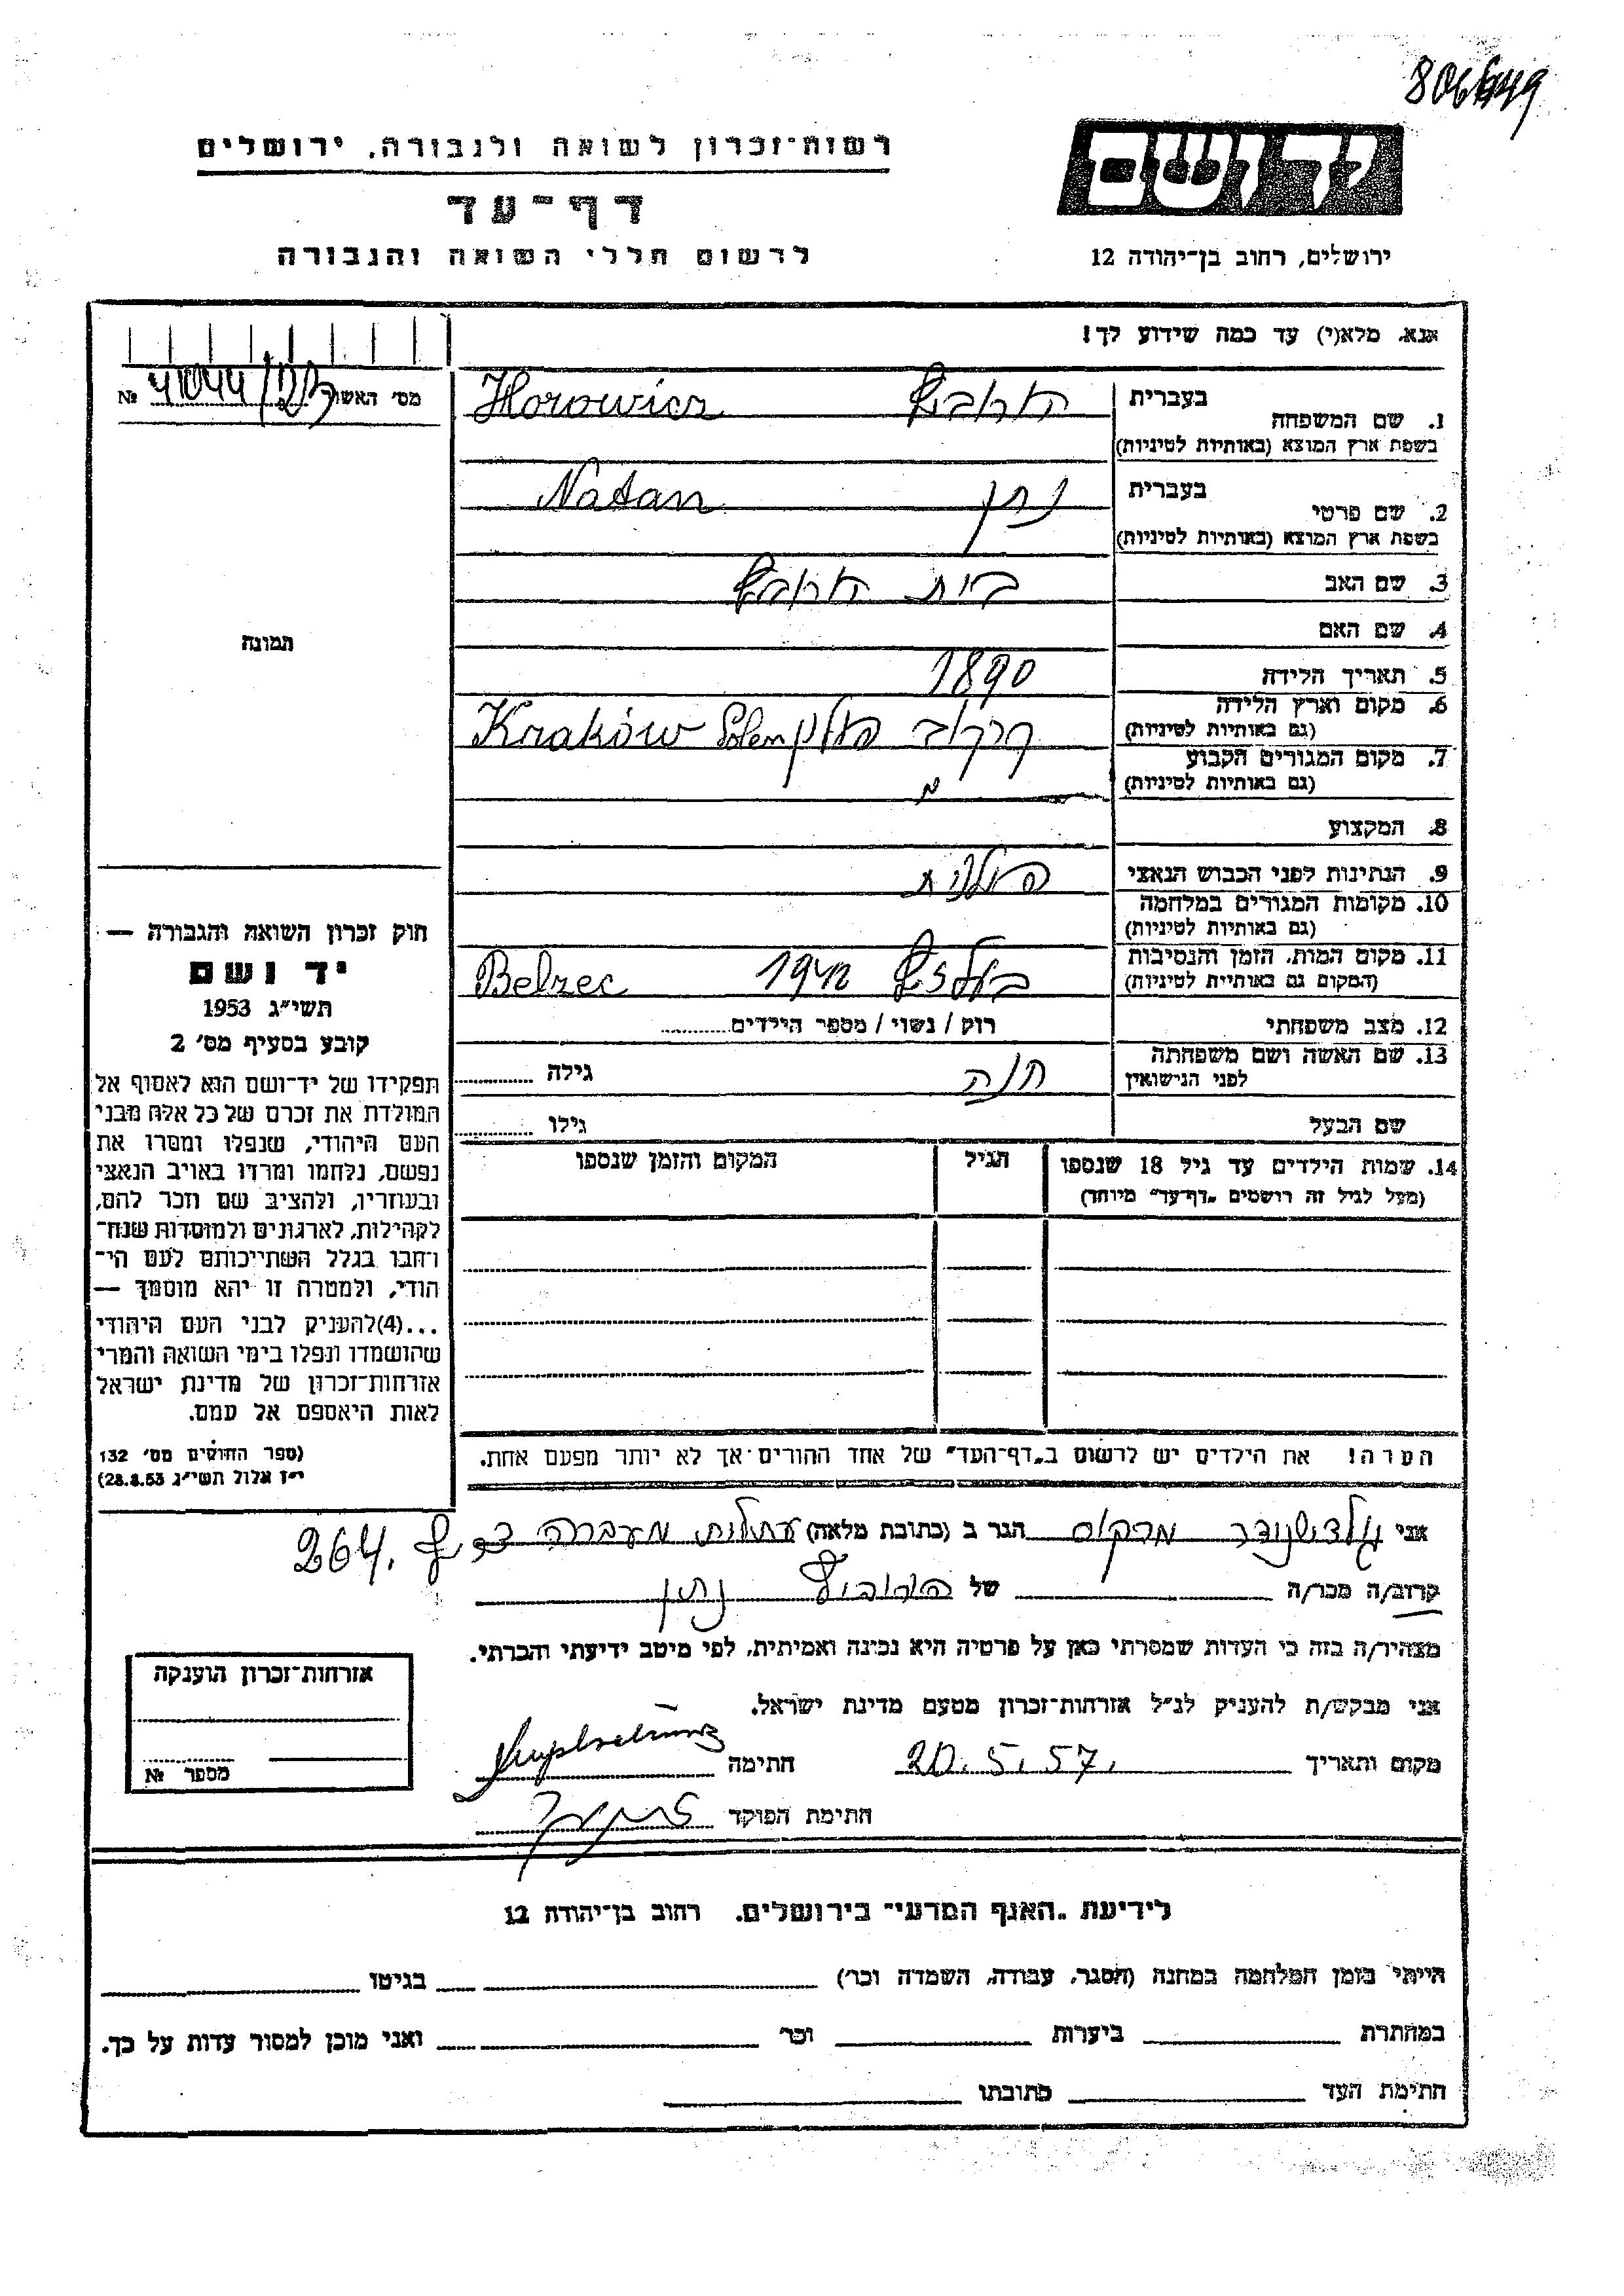 806649
יד ושם
רשות־זכרון לשואה ולגבורה, ירושלים
דף־עד
לרשום חללי השואה והגבורה
ירושלים, רחוב בן־יהודה 12
אנא, מלא(י) עד כמה שידוע לך!
מס׳ האשור 41044/123 №
1. שם המשפחה
בעברית
הורוביץ Horowicz
בשפת ארץ המוצא (באותיות לטיניות)
2. שם פרטי
בעברית
נתן Natan
בשפת ארץ המוצא (באותיות לטיניות)
3. שם האב
הורוביץ
4. שם האם
5. תאריך הלידה
1890
6. מקום וארץ הלידה
(גם באותיות לטיניות)
קרקוב פולין Kraków
7. מקום המגורים הקבוע
(גם באותיות לטיניות)
8. המקצוע
9. הנתינות לפני הכבוש הנאצי
פולנית
10. מקומות המגורים במלחמה
(גם באותיות לטיניות)
11. מקום המות, הזמן והנסיבות
(המקום גם באותיות לטיניות)
בלזץ 1942 Belzec
12. מצב משפחתי
רוק / נשוי / מספר הילדים
13. שם האשה ושם משפחתה
לפני הנישואין
חנה
גילה
שם הבעל
גילו
14. שמות הילדים עד גיל 18 שנספו
(מעל לגיל זה רושמים „דף־עד״ מיוחד)
הגיל
המקום והזמן שנספו
הערה! את הילדים יש לרשום ב„דף־העד״ של אחד ההורים אך לא יותר מפעם אחת.
תמונה
חוק זכרון השואה והגבורה —
יד ושם
תשי״ג 1953
קובע בסעיף מס׳ 2
תפקידו של יד־ושם הוא לאסוף אל
המולדת את זכרם של כל אלה מבני
העם היהודי, שנפלו ומסרו את
נפשם, נלחמו ומרדו באויב הנאצי
ובעוזריו, ולהציב שם וזכר להם,
לקהילות, לארגונים ולמוסדות שנח־
רחבו בגלל השתייכותם לעם הי־
הודי, ולמטרה זו יהא מוסמך —
...(4)להעניק לבני העם היהודי
שהושמדו ונפלו בימי השואה והמרי
אזרחות־זכרון של מדינת ישראל
לאות היאספם אל עמם.
(ספר החוקים מס׳ 132
י״ז אלול תשי״ג 28.8.53)
אני גולדשנידר מרקוס הגר ב (כתובת מלאה) עתלית מעברה ד. צ. 264
קרוב/ה מכר/ה של הורוביץ נתן
מצהיר/ה בזה כי העדות שמסרתי כאן על פרטיה היא נכונה ואמיתית, לפי מיטב ידיעתי והכרתי.
אני מבקש/ת להעניק לנ״ל אזרחות־זכרון מטעם מדינת ישראל.
מקום ותאריך 20.5.57. חתימה
חתימת הפוקד
אזרחות־זכרון הוענקה
מספר №
לידיעת „האגף המדעי״ בירושלים, רחוב בן־יהודה 12
הייתי בזמן המלחמה במחנה (הסגר, עבודה, השמדה וכו׳) בגיטו
במחתרת ביערות וכו׳ ואני מוכן למסור עדות על כך.
חתימת העד כתובתו